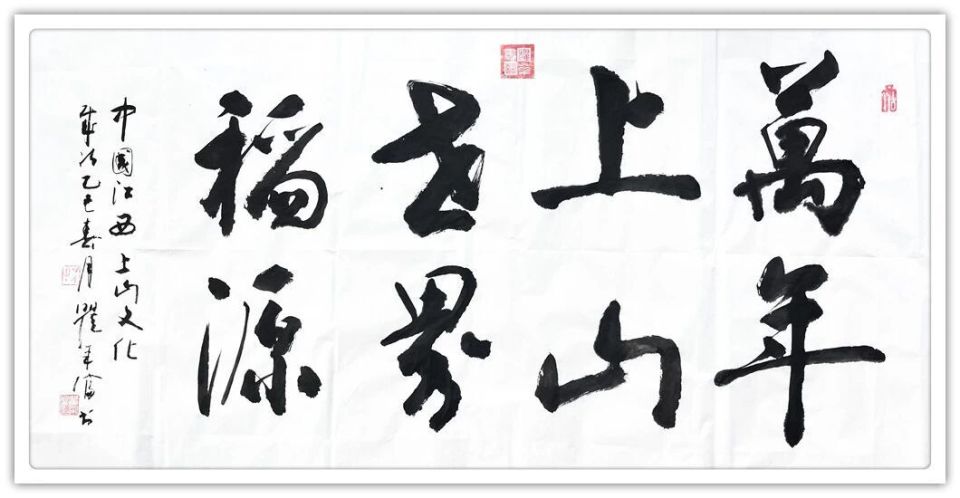 萬年
上山
世界
稻源
中國江西上山文化
歲次乙巳春月